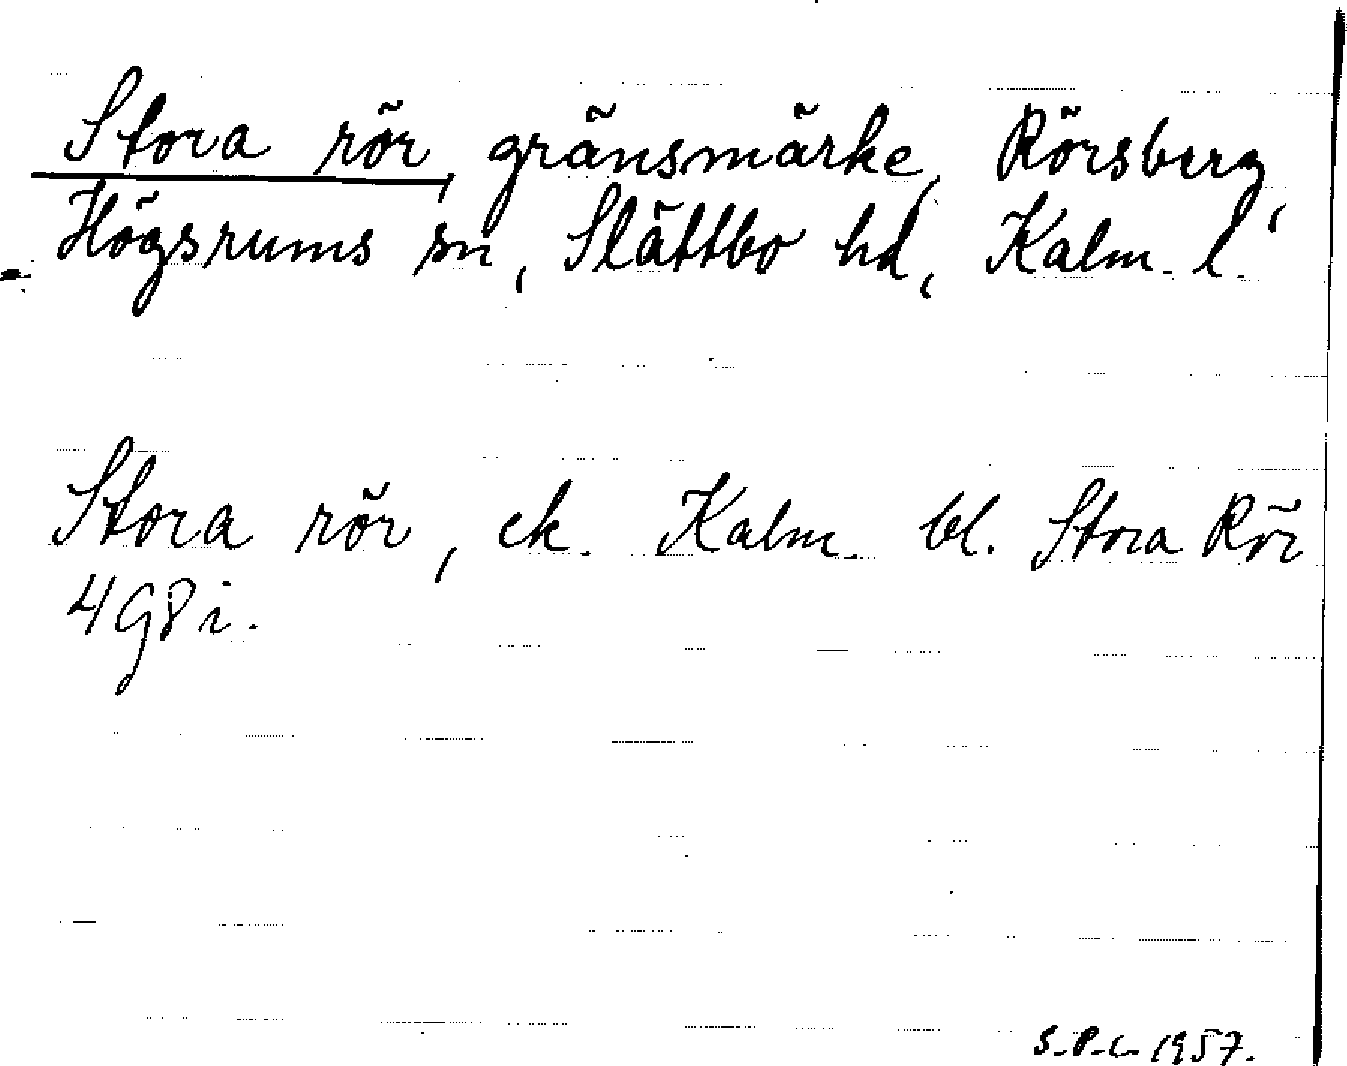 Stora rör, gränsmärke, Rörsberg,
Högsrums sn, Slättbo hd, Kalm. l.
Stora rör, ek. Kalm. bl. Stora Rör
4 G 8 i.
S.P.L. 1957.